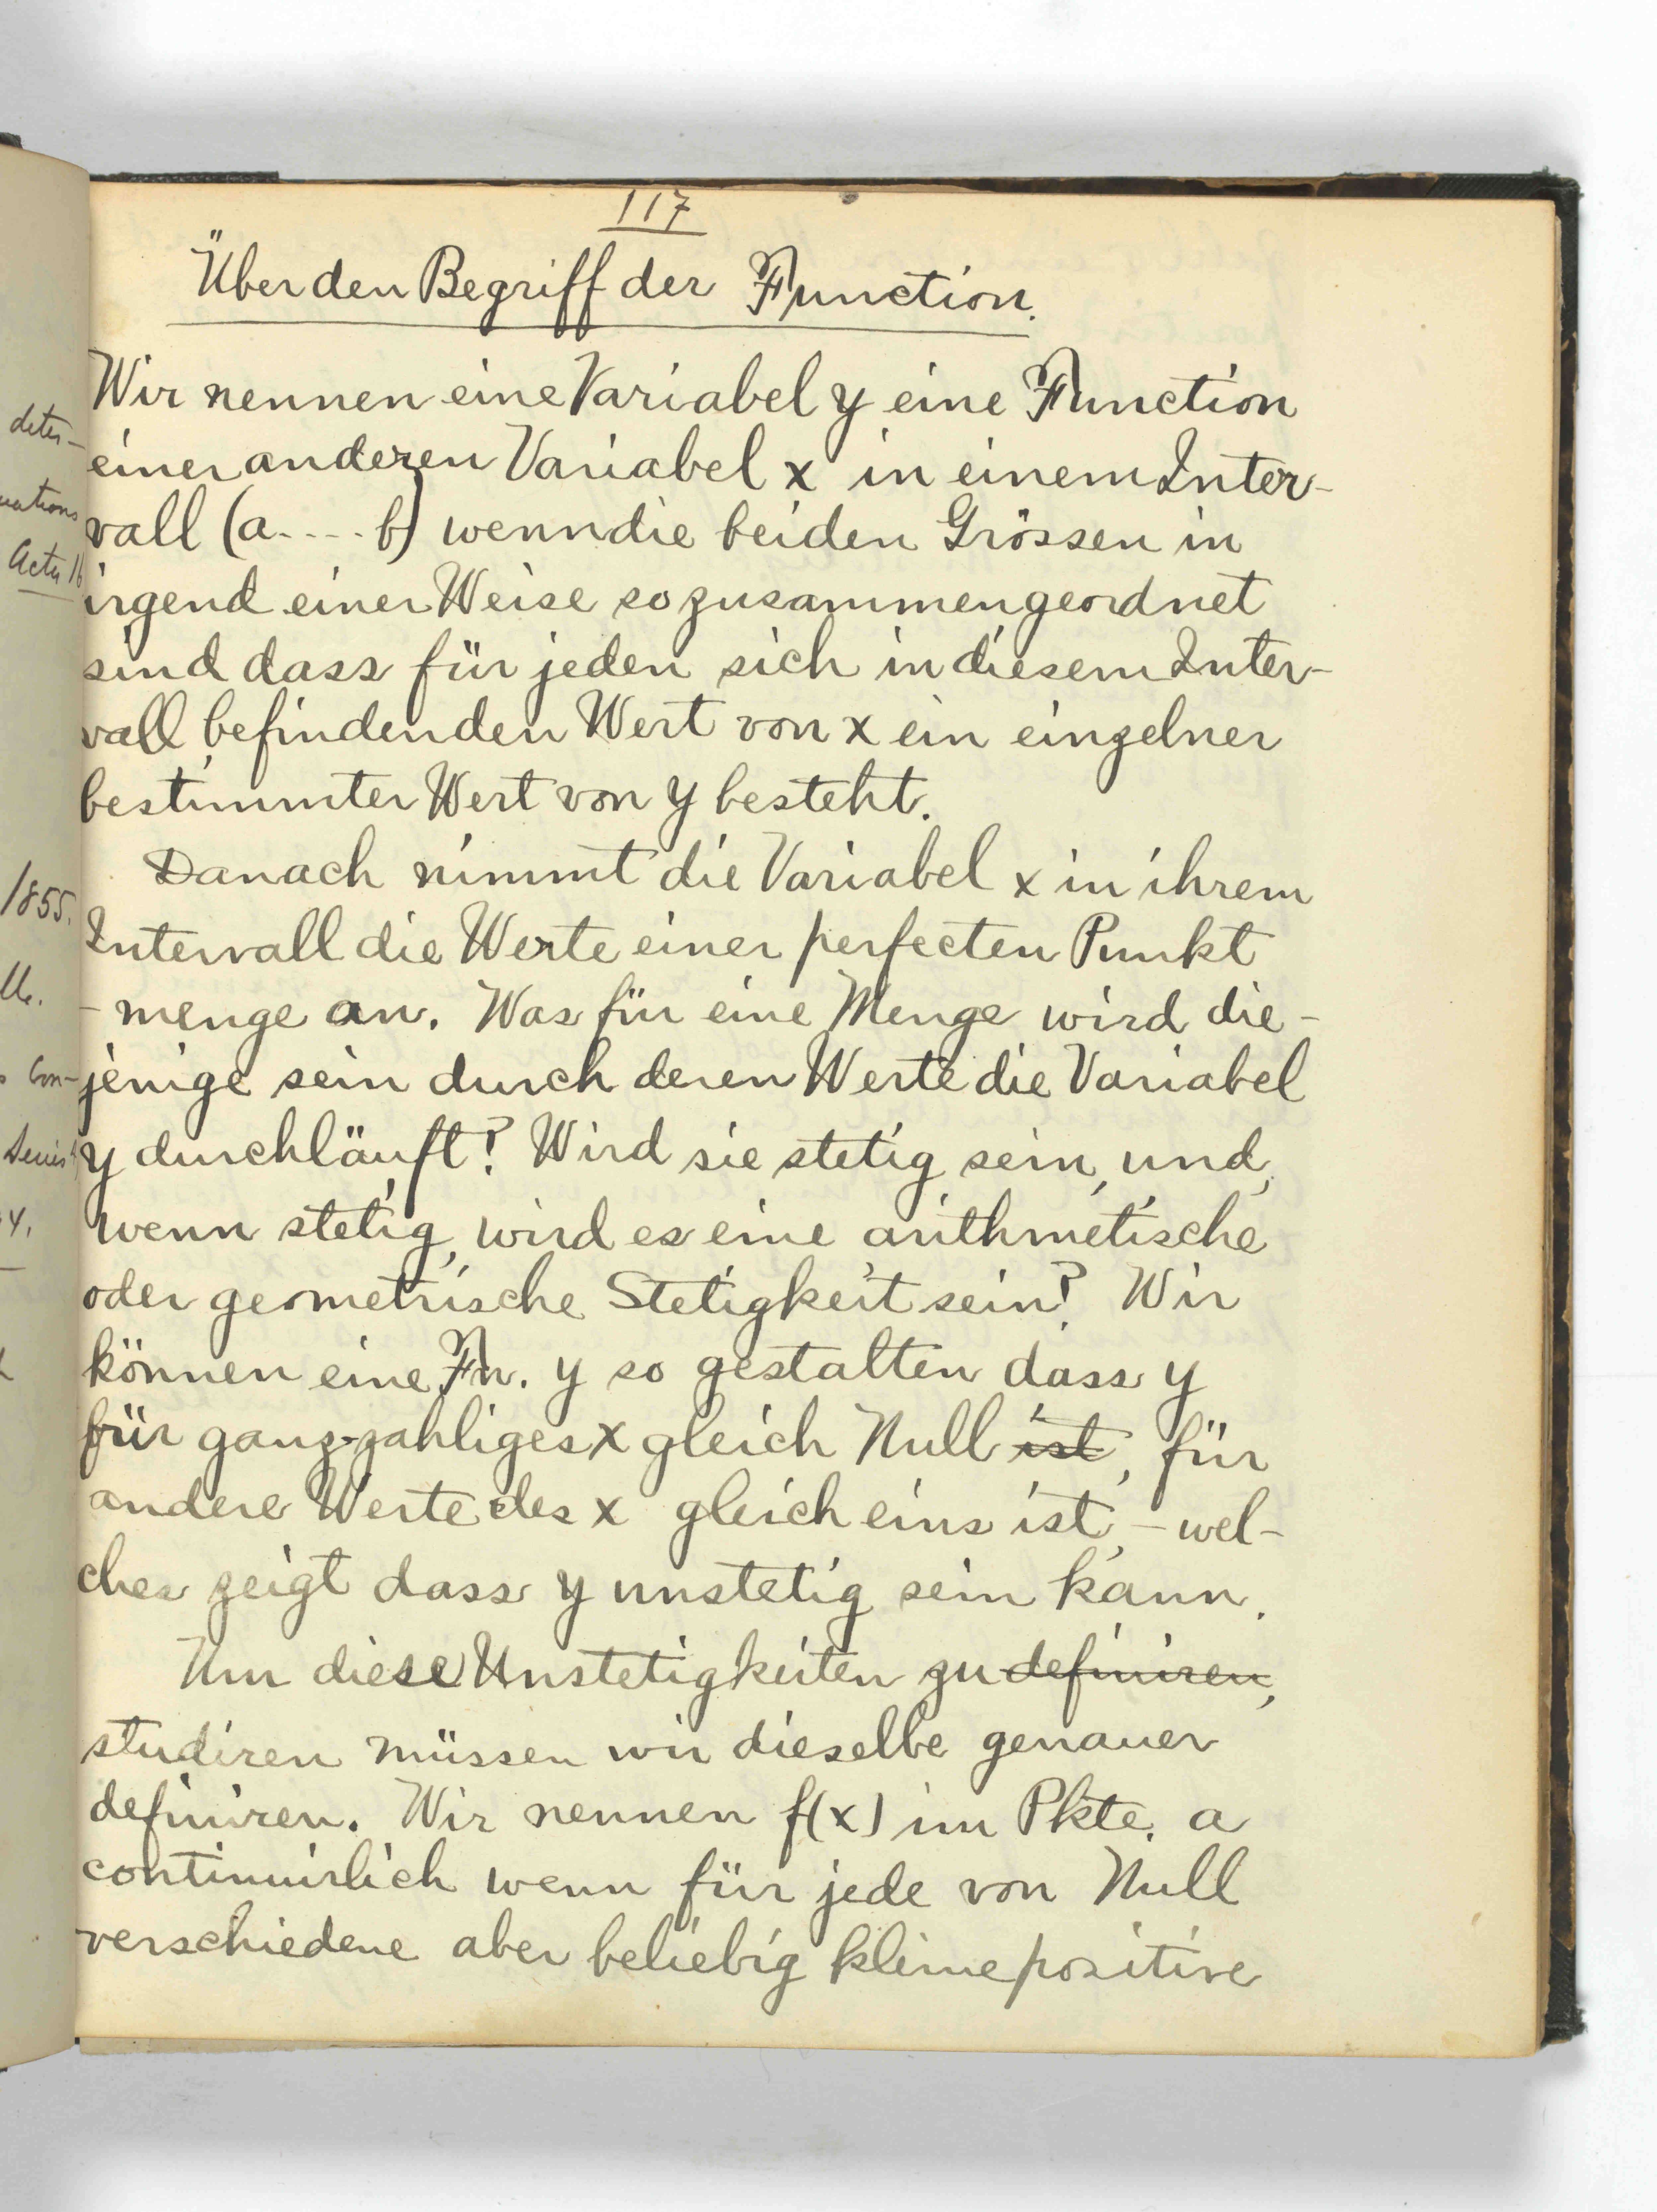 117
Über den Begriff der Function.
Wir nennen eine Variabel y eine Function
einer anderen Variabel x in einem Inter-
vall (a....b) wenn die beiden Grössen in
irgend einer Weise so zusammengeordnet
sind dass für jeden sich in diesem Inter-
vall befindenden Wert von x ein einzelner
bestimmter Wert von y besteht.
Danach nimmt die Variabel x in ihrem
Intervall die Werte einer perfecten Punkt
-menge an. Was für eine Menge wird die-
jenige sein durch deren Werte die Variabel
y durchläuft? Wird sie stetig sein, und,
wenn stetig, wird es eine arithmetische
oder geometrische Stetigkeit sein? Wir
können eine Fn. y so gestalten dass y
für ganz-zahliges x gleich Null ist, für
andere Werte des x gleich eins ist, - wel-
ches zeigt dass y unstetig sein kann.
Um diese Unstetigkeiten zu definiren,
studiren müssen wir dieselbe genauer
definiren. Wir nennen f(x) im Pkte. a
continuirlich wenn für jede von Null
verschiedene aber beliebig kleine positive
deter-
Acta 16
1855.